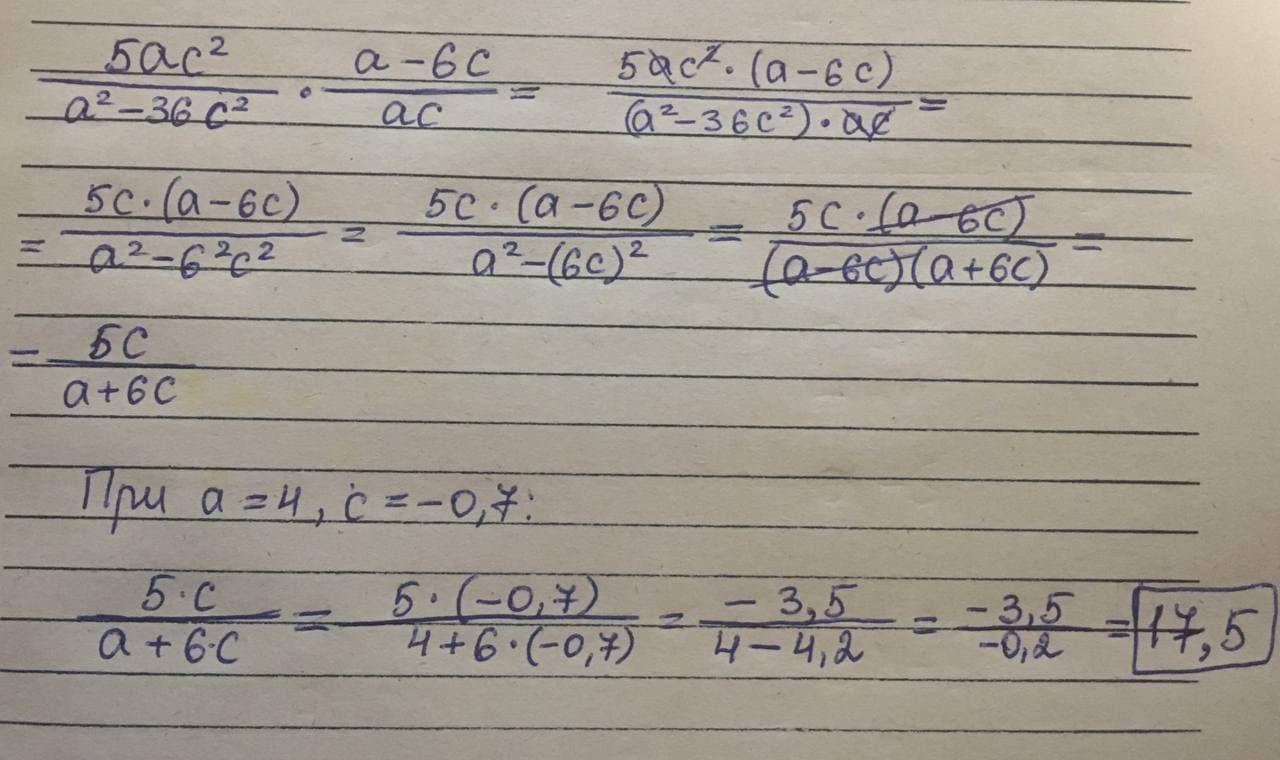 5ac²/(a²-36c²) · (a-6c)/(ac) = 5ac²·(a-6c)/((a²-36c²)·ac) =
= 5c·(a-6c)/(a²-6²c²) = 5c·(a-6c)/(a²-(6c)²) = 5c·(a-6c)/((a-6c)(a+6c)) =
= 5c/(a+6c)
При a=4, c=-0,7:
5·c/(a+6·c) = 5·(-0,7)/(4+6·(-0,7)) = -3,5/(4-4,2) = -3,5/-0,2 = 17,5